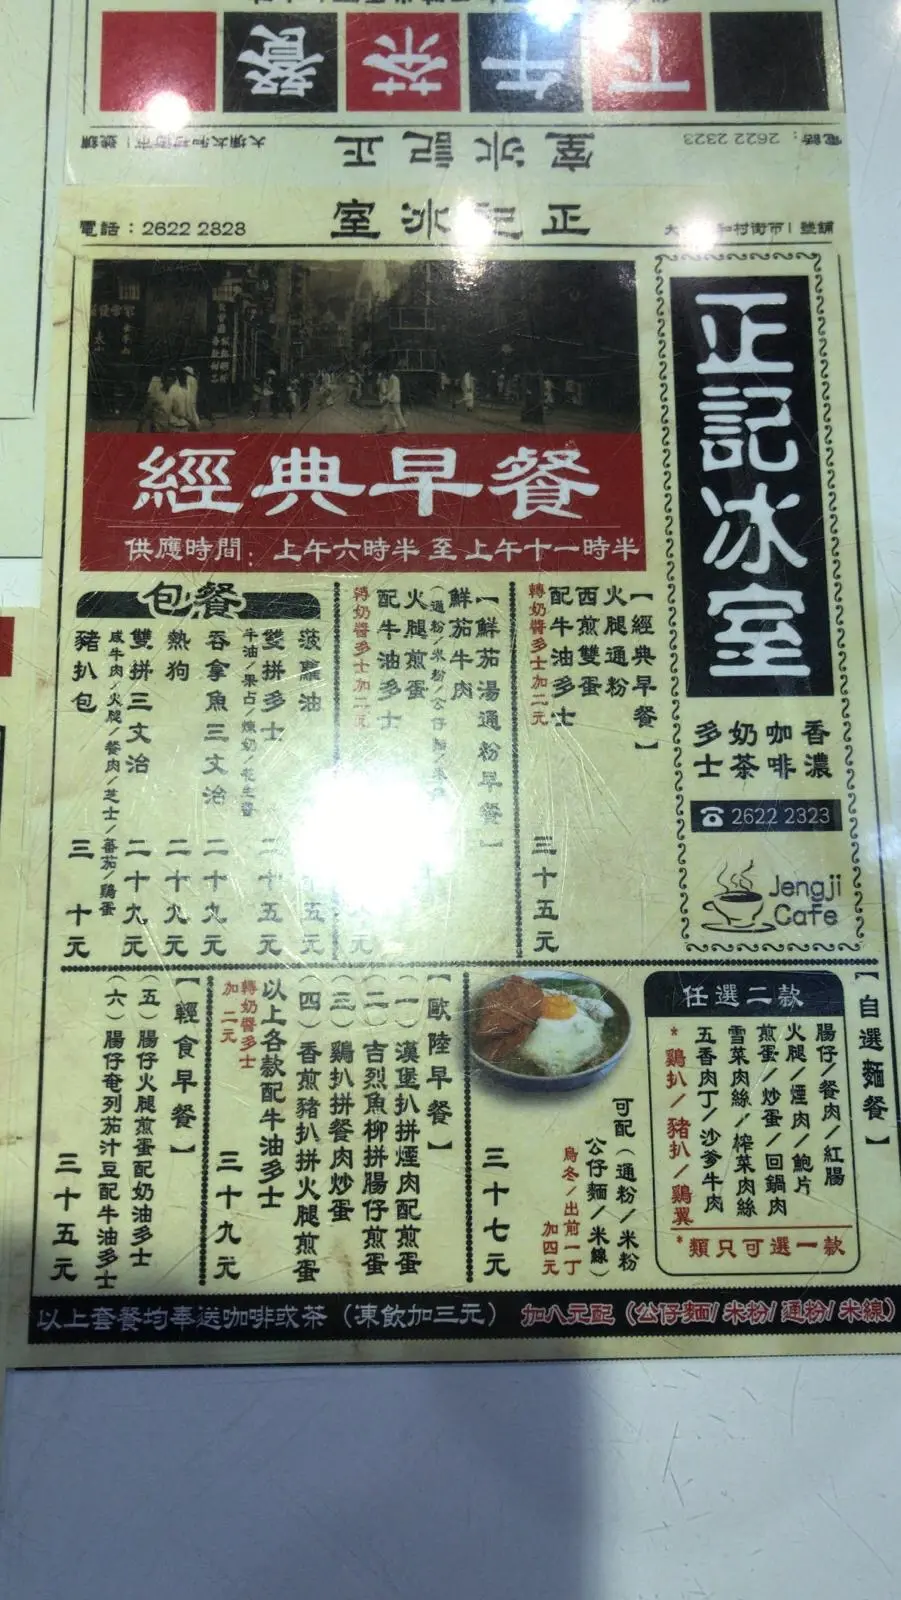 餐 茶 午 下
正記冰室
電話：2622 2323
電話：2622 2323
正記冰室
和村街市1號舖
經典早餐
供應時間：上午六時半至上午十一時半
正記冰室
香濃
咖啡
奶茶
多士
☎ 2622 2323
Jengji
Cafe
【經典早餐】
火腿通粉
西煎雙蛋
配牛油多士
轉奶醬多士加二元
三十五元
【鮮茄湯通粉早餐】
鮮茄牛肉
(通粉/米粉/公仔麵/米
火腿煎蛋
配牛油多士
轉奶醬多士加二元
元
包餐
菠蘿油
十五元
雙拼多士
牛油/果占/煉奶/花生醬
二十五元
吞拿魚三文治
二十九元
熱狗
二十九元
雙拼三文治
咸牛肉/火腿/餐肉/芝士/蕃茄/鷄蛋
二十九元
豬扒包
三十元
【自選麵餐】
任選二款
腸仔/餐肉/紅腸
火腿/煙肉/鮑片
煎蛋/炒蛋/回鍋肉
雪菜肉絲/榨菜肉絲
五香肉丁/沙爹牛肉
*鷄扒/豬扒/鷄翼
*類只可選一款
可配(通粉/米粉
公仔麵/米線)
烏冬/出前一丁
加四元
三十七元
【歐陸早餐】
(一)漢堡扒拼煙肉配煎蛋
(二)吉烈魚柳拼腸仔煎蛋
(三)鷄扒拼餐肉炒蛋
(四)香煎豬扒拼火腿煎蛋
以上各款配牛油多士
轉奶醬多士
加二元
三十九元
【輕食早餐】
(五)腸仔火腿煎蛋配奶油多士
(六)腸仔奄列茄汁豆配牛油多士
三十五元
以上套餐均奉送咖啡或茶（凍飲加三元） 加八元配（公仔麵/米粉/通粉/米線）